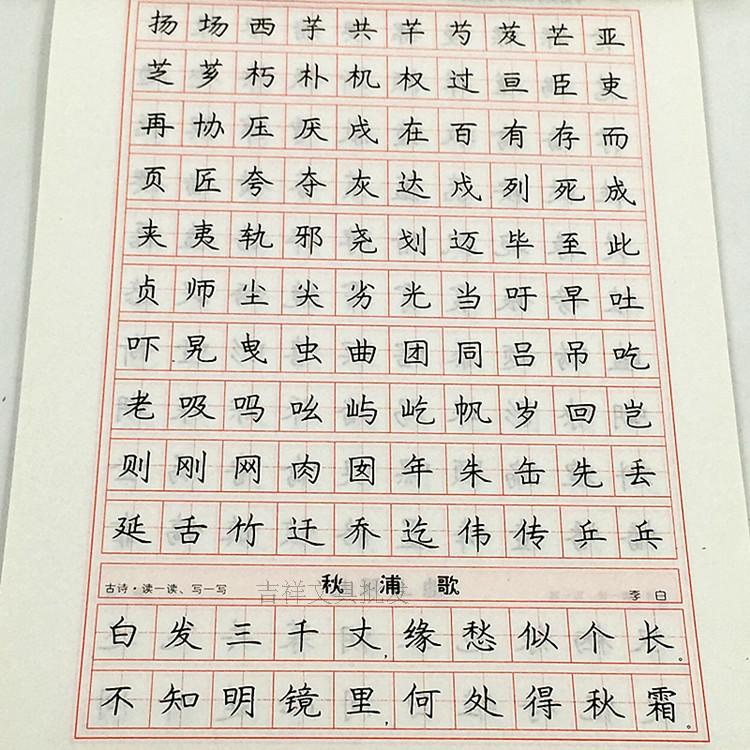 扬场西芋共芊芍芨芒亚
芝芗朽朴机权过亘臣吏
再协压厌戌在百有存而
页匠夸夺灰达戍列死成
夹夷轨邪尧划迈毕至此
贞师尘尖劣光当吁早吐
吓晃曳虫曲团同吕吊吃
老吸吗吆屿屹帆岁回岂
则刚网肉囡年朱缶先丢
延舌竹迁乔迄伟传乒乓
古诗·读一读、写一写 秋浦歌 李白
吉祥文具批发
白发三千丈,缘愁似个长。
不知明镜里,何处得秋霜。